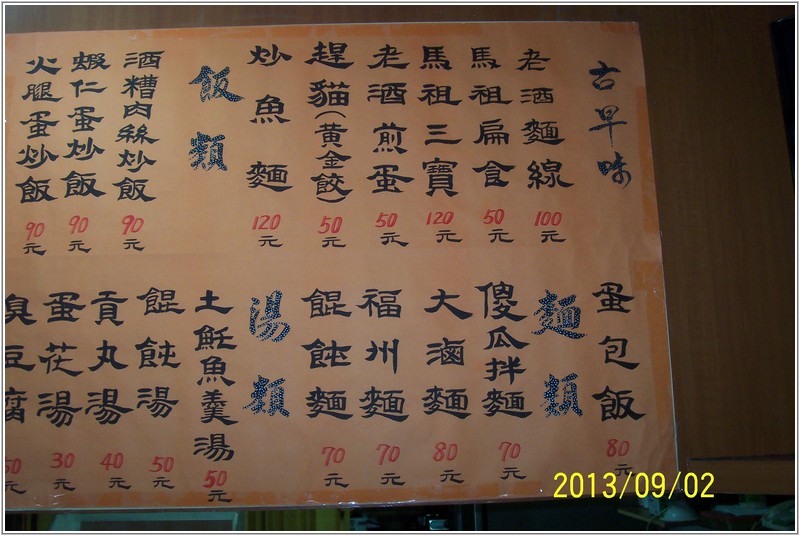 古早味
老酒麵線 100元
馬祖扁食 50元
馬祖三寶 120元
老酒煎蛋 50元
趕貓(黃金餃) 50元
炒魚麵 120元
飯類
酒糟肉絲炒飯 90元
蝦仁蛋炒飯 90元
火腿蛋炒飯 90元
蛋包飯 80元
麵類
傻瓜拌麵 70元
大滷麵 80元
福州麵 70元
餛飩麵 70元
湯類
土魠魚羹湯 50元
餛飩湯 50元
貢丸湯 40元
蛋花湯 30元
臭豆腐 50元
2013/09/02